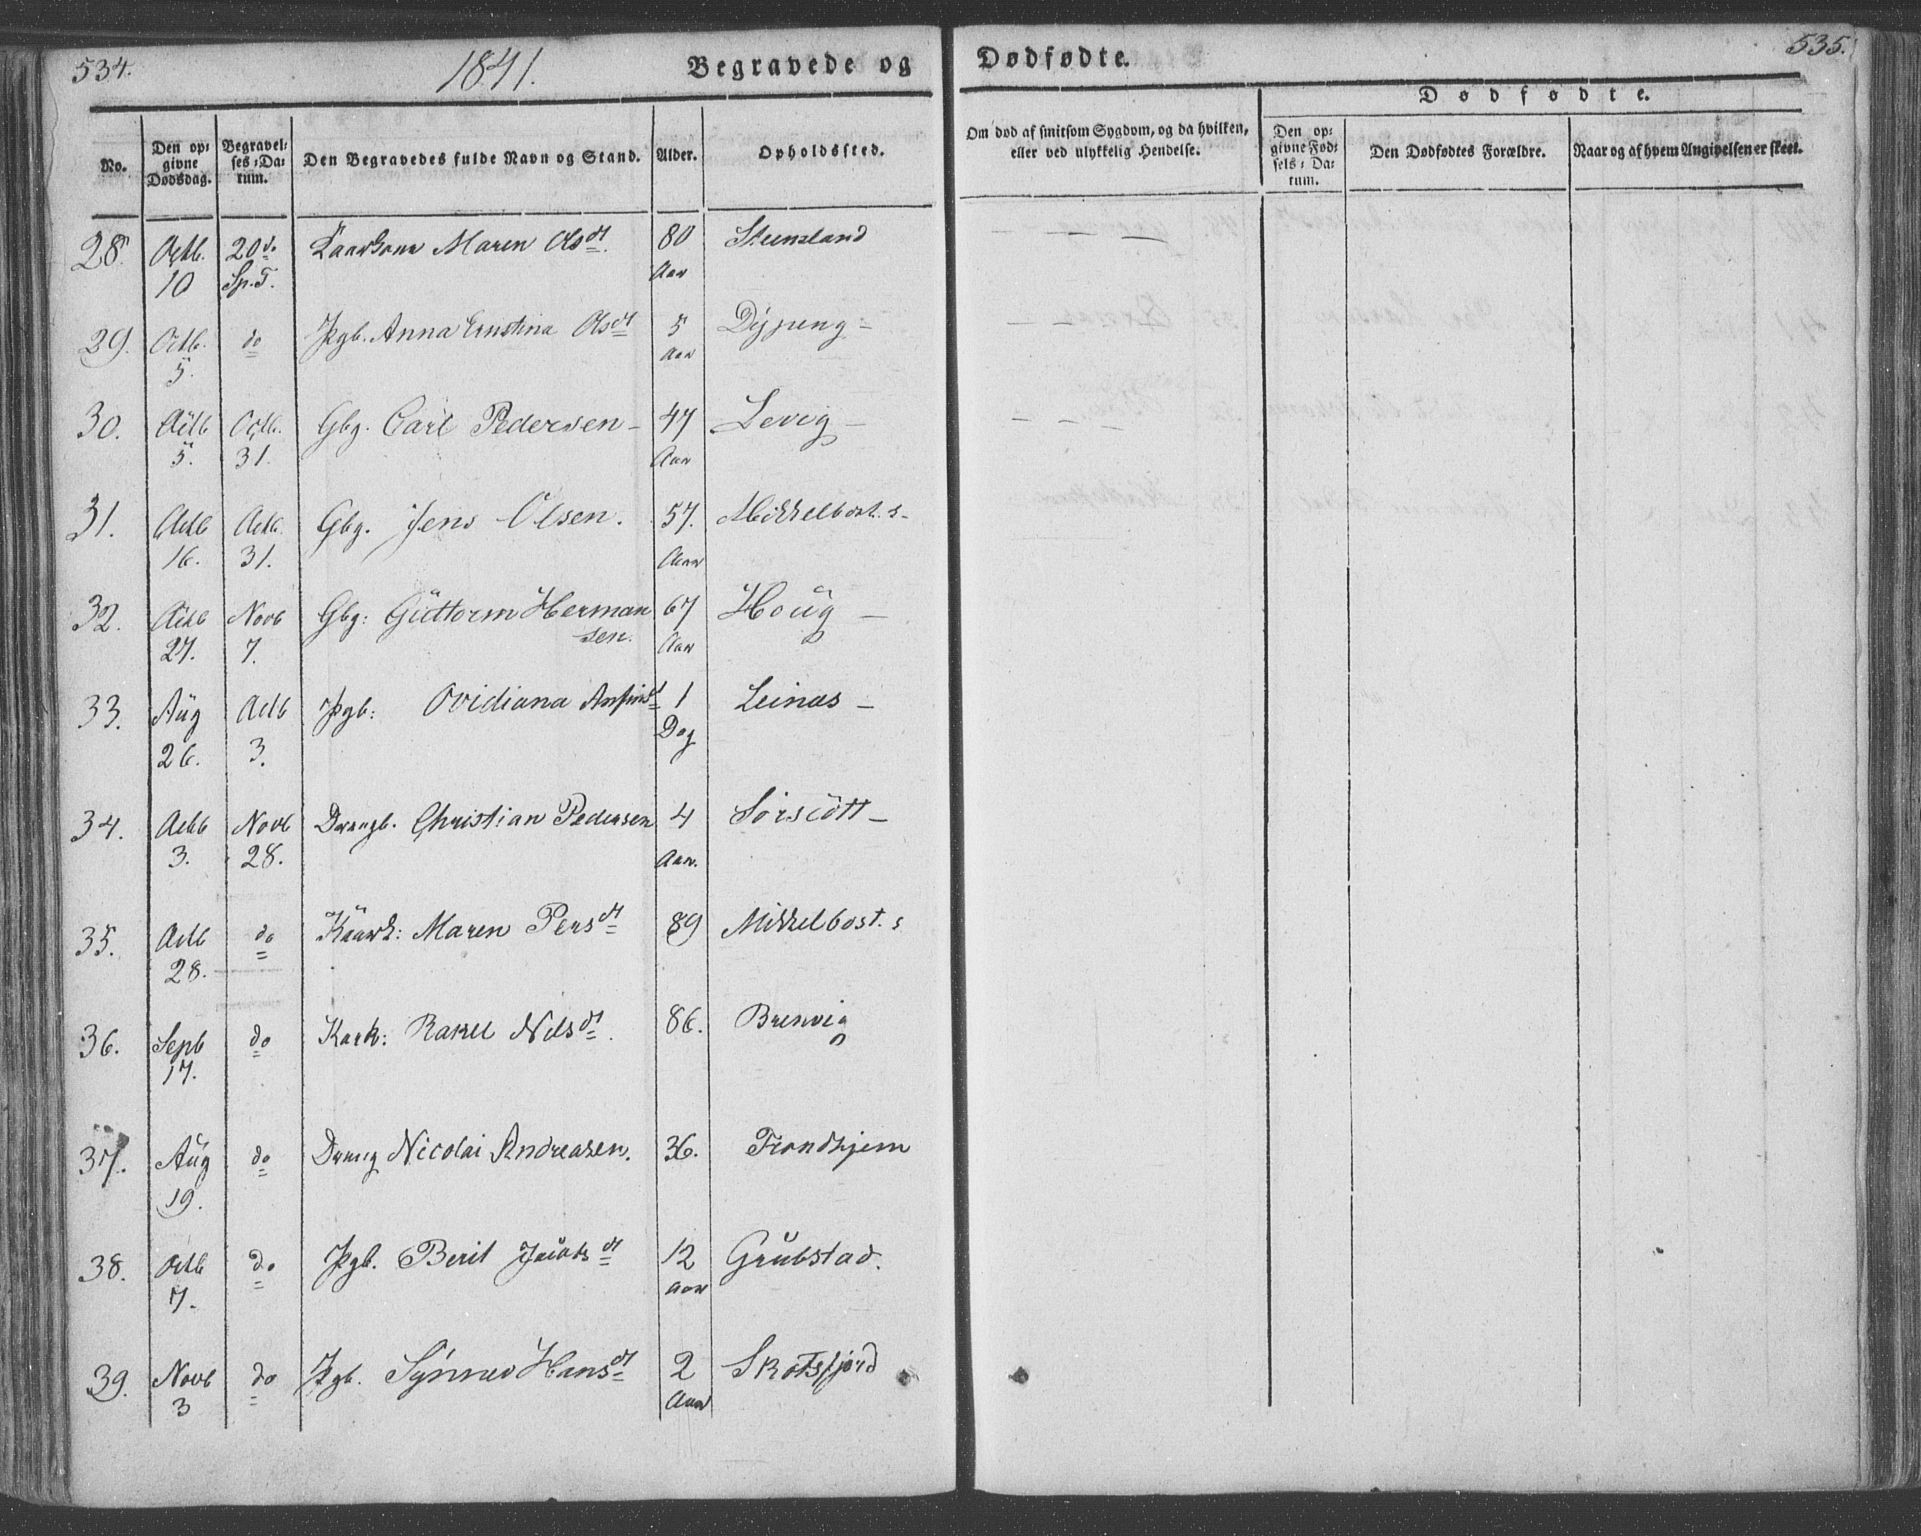 534.
1841.
Begravede og
Dødfødte.
535.
No.
Den op=
givne
Dødsdag.
Begravel=
ses=Da=
tum.
Den Begravedes fulde Navn og Stand.
Alder.
Opholdssted.
Om død af smitsom Sygdom, og da hvilken,
eller ved ulykkelig Hendelse.
Dødfødte.
Den op=
givne Fød=
sels=Da=
tum.
Den Dødfødtes Forældre.
Naar og af hvem Angivelsen er skeet.
28. Octb. 20de Maren Olsdt 80 Steensland
10 Sp.T. Aar
29. Octb. do Pgb. Anna Ernstina Olsdt 5
5. Aar
30. Octb Octb. Gbg. Carl Pedersen 47 Levig
5. 31. Aar
31. Octb Octb. Gbg. Jens Olsen. 57. Mikkelbost. s.
16. 31. Aar
32. Octb Novb Gbg: Guttorm Herman 67 Houg
27. 7. sen. Aar
33. Aug Octb Pgb: Ovidiana 1 Leinæs
26. 3. Dag
34. Octb Novb Drengb. Christian Pedersen 4 Sörscött
3. 28. Aar.
35. Octb do Kaark: Maren Persdt 89 Mikkelbost. s
28.
36. Septb do Kark: Rakel Nilsdt. 86. Brenvig
17.
37. Aug do Dreng Nicolai Andreasen. 36. Trondhjem
19.
38. Octb do Pgb. Berit Jacobsdt 12 Grubstad.
7. Aar
39. Novb do Pgb. Synnev Hansdt 2 Skotsfjord
3 Aar